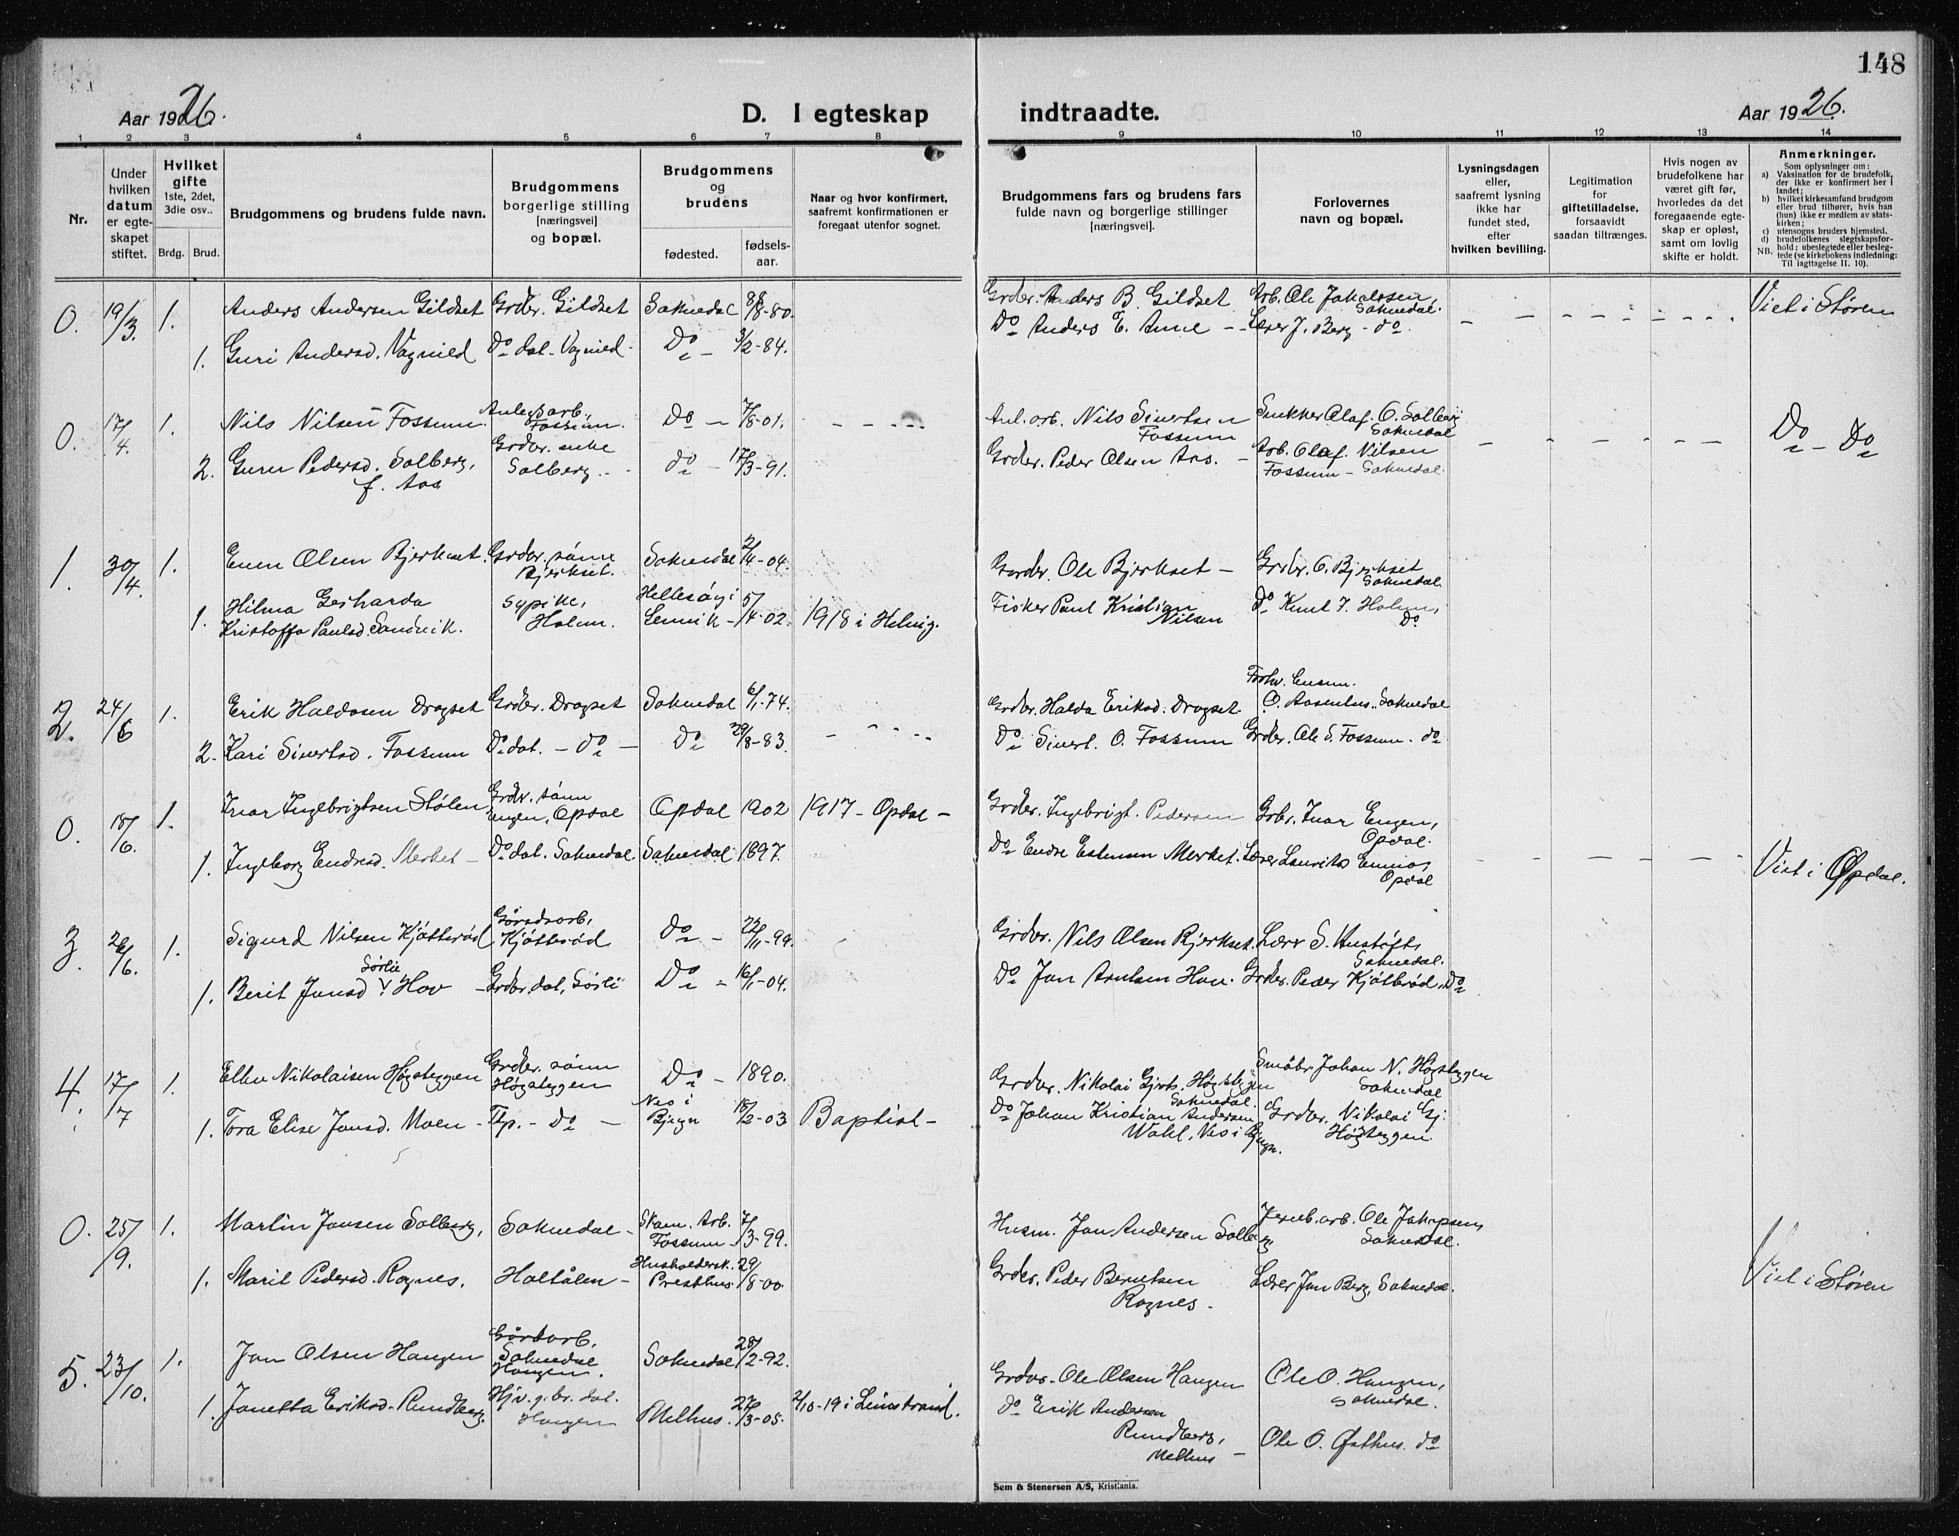 148
Aar 1926.
D. I egteskap
indtraadte.
Aar 1926.
1 2 3 4 5 6 7 8 9 10 11 12 13 14
Nr.
Under hvilken datum er egteskapet stiftet.
Hvilket gifte
1ste, 2det, 3die osv..
Brdg. Brud.
Brudgommens og brudens fulde navn.
Brudgommens borgerlige stilling [næringsvei] og bopæl.
Brudgommens og brudens
fødested.
fødselsaar.
Naar og hvor konfirmert, saafremt konfirmationen er foregaat utenfor sognet.
Brudgommens fars og brudens fars fulde navn og borgerlige stillinger [næringsvei].
Forlovernes navn og bopæl.
Lysningsdagen eller, saafremt lysning ikke har fundet sted, efter hvilken bevilling.
Legitimation for giftetilladelse, forsaavidt saadan tiltrænges.
Hvis nogen av brudefolkene har været gift før, hvorledes da det foregaaende egteskap er opløst, samt om lovlig skifte er holdt.
Anmerkninger.
Som oplysninger om:
a) Vaksination for de brudefolk, der ikke er konfirmert her i landet;
b) hvilket kirkesamfund brudgom eller brud tilhører, hvis han (hun) ikke er medlem av statskirken;
c) utensogns bruders hjemsted.
d) brudefolkenes slegtskapsforhold; ubeslegtede eller beslegtede (se kirkebokens indledning:
NB. Til iagttagelse II. 10).
0. 19/3. 1. Anders Andersen Gildset Grdbr. Gildset Soknedal 8/8-80. Grdbr. Anders B. Gildset Arb. Ole Jakobsen, Soknedal. Viet i Støren
1. Guri Andersd. Vagnild Do dat. Vagnild Do 3/2-84. Do Anders E. Aune Lærer J. Berg - do.
0. 17/4. 1. Nils Nilsen Fossum Anlegsarb. Fossum. Do 7/8-01. Anl. arb. Nils Sivertsen Fossum Snekker Olaf O. Solberg Soknedal Do - Do
2. Guru Pedersd. Solberg, f. Aas Grdbr. enke Solberg Do 17/3-91. Grdbr. Peder Olsen Aas. Arb. Olaf Nilsen Fossum - Soknedal.
1. 30/4. 1. Even Olsen Bjerkset. Grdbr. sønn Bjerkset. Soknedal 2/4-04. Gardbr. Ole Bjerkset Grdbr. O. Bjerkset Soknedal.
1. Hilma Gerharda Kristoffa Paulsd. Sandvik. sypike, Holum. Hellesøy i 5/4-02. 1918 i Fisker Paul Kristian Nilsen Do Knut J. Holum, Do
2. 24/6 1. Erik Haldosen Dragset Grdbr. Dragset Soknedal 6/1-74. Grdbr. Haldo Eriksd. Dragset O. Aasenhus. Soknedal
2. Kari Sivertsd. Fossum Do dat. - Do Do 29/8-83. Do Sivert O. Fossum Grdbr. Ole S. Fossum. do
0. 18/6. 1. Ivar Ingebrigtsen Stølen Grdbr. sønn Engen, Opdal Opdal 1902 1917 - Opdal - Grdbr. Ingebrigt Pedersen Grbr. Ivar Engen, Opdal. Viet i Opdal.
1. Ingeborg Endresd. Merket Do dat. Soknedal Soknedal 1897. Do Endre Estensen Merket. Lærer Laurits Opdal
3. 26/6. 1. Sigurd Nilsen Kjøtterød Gårdsarb. Kjøtterød Do 22/11-99. Grdbr. Nils Olsen Bjerkset. Lærer S. Soknedal.
1. Berit Jonsd. Sørlie Hov Grdbr. dat. Sørli Do 16/1-04. Do Jon Arntsen Hov. Grdbr. Peder Kjøtterød, Do
4. 17/7 1. Ellev Nikolaisen Høgsteggen Grdbr. sønn Høgsteggen Do 1890. Grdbr. Nikolai Gjerts. Høgsteggen Soknedal. Småbr. Johan N. Høgsteggen Soknedal
1. Tora Elise Jonsd. Moen Tp. - Do Nes i Bjugn 18/2-03 Baptist - Do Johan Kristian Andersen Wahl, Nes i Bjugn. Grdbr. Nikolai Gj: Høgsteggen.
0. 25/9. 1. Martin Jonsen Solberg, Soknedal Skom. Arb. Fossum 7/3-99. Husm. Jon Andersen Solberg Jernb. arb. Ole Jakopsen, Soknedal. Viet i Støren
1. Marit Pedersd. Rognes. Holtålen Husholdersk. Presthus 29/8-00. Grdbr. Peder Berntsen Rognes. Lærer Jon Berg, Soknedal.
5. 23/10. 1. Jon Olsen Haugen Gårdarb. Soknedal Haugen. Soknedal 28/2-92. Grdbr. Ole Olsen Haugen Ole O. Haugen, Soknedal.
1. Janetta Eriksd. Rundberg g.br. dat. Haugen Melhus. 27/3-05. 2/10-19 i Leinstrand. Do Erik Andersen Rundberg, Melhus Ole O. Østhus. do
Sem & Stenersen A/S, Kristiania.